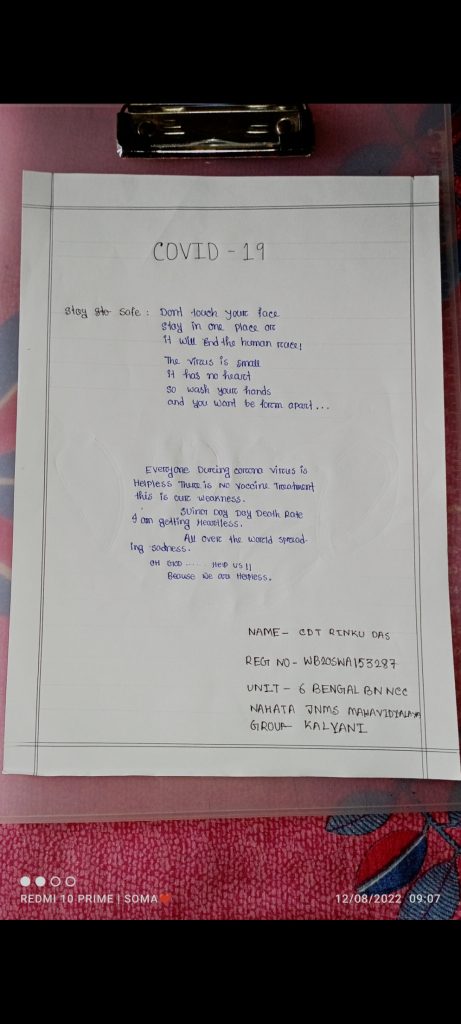 COVID - 19
Stay sto safe : Dont touch your face
Stay in one place or
it will end the human race!
The virus is small
it has no heart
so wash your hands
and you wont be torm apart...
Everyone During corona virus is
Helpless There is No vaccine Treatment
this is our weakness.
Day Day Death Rate
I am getting Heartless.
All over the world spread-
ing sadness.
OH GOD ...... Help US!!
Because We are Helpless.
NAME - CDT RINKU DAS
REG NO - WB20SWA153287
UNIT - 6 BENGAL BN NCC
NAHATA JNMS MAHAVIDYALAYA
GROUP KALYANI
REDMI 10 PRIME | SOMA❤
12/08/2022 09:07